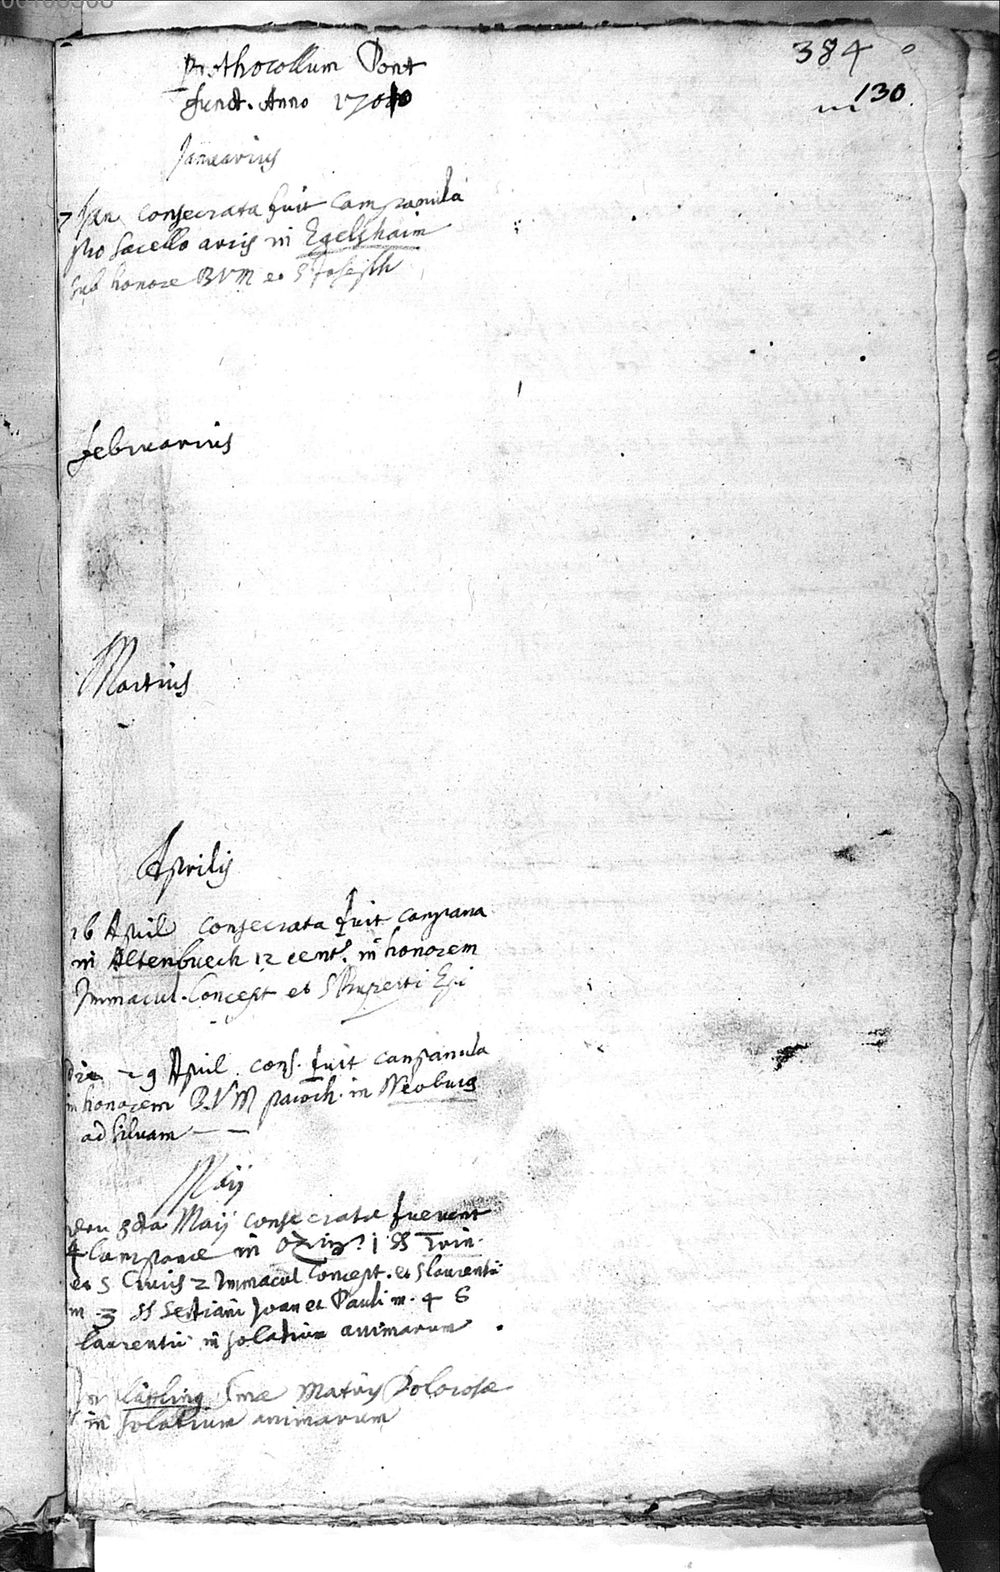 384
130
Prothocollum Pont
funct. Anno 1701
Januarius
7 Jan consecrata fuit campanula
pro sacello arcis in Egelshaim
sub honore BVM et S Joseph
Februarius
Martius
Aprilis
16 April consecrata fuit campana
in Altenbuech 12 cent. in honorem
Immacul. Concept et S Ruperti Epi
die 29 April cons. fuit campanula
in honorem B.V.M paroch. in Neoburg
ad silvam
Maij
den 8va Maij consecratae fuerunt
4 Campanae in 1 SS Trin.
et S Crucis 2 Immacul Concept. et S Laurentii
m 3 SS Joan et Pauli m. 4 S
Laurentii in solatium animarum
in Matris Dolorosae
in solatium animarum